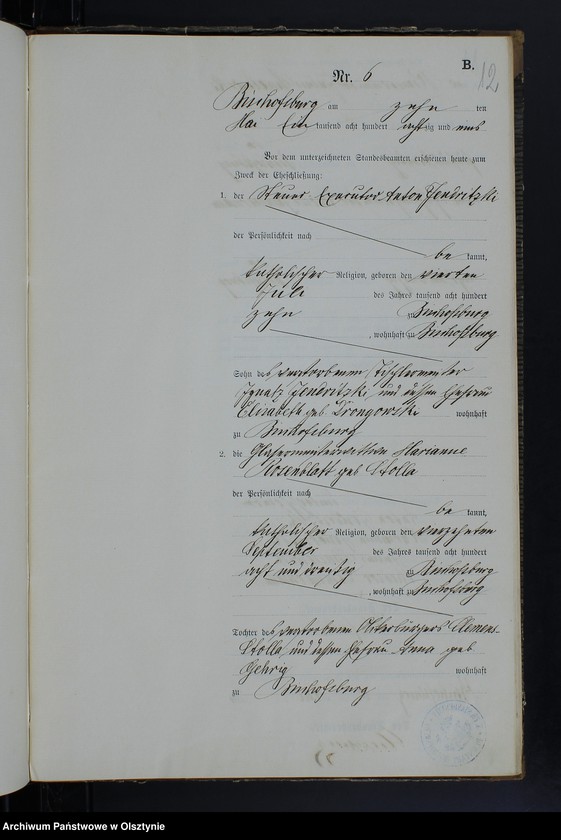 B.
12
Nr. 6
Bischofsburg am zehn ten
Mai Ein tausend acht hundert achtzig und eins
Vor dem unterzeichneten Standesbeamten erschienen heute zum
Zweck der Eheschließung:
1. der Steuer Executor Anton Jendritzki
der Persönlichkeit nach
be kannt,
katholischer Religion, geboren den vierten
Juli des Jahres tausend acht hundert
zehn zu Bischofsburg
, wohnhaft zu Bischofsburg
Sohn des verstorbenen Tischlermeister
Ignatz Jendritzki und dessen Ehefrau
Elisabeth geb Drongowski wohnhaft
zu Bischofsburg
2. die Glasermeisterwittwe Marianne
Rosenblatt geb Stolla
der Persönlichkeit nach
be kannt,
katholischer Religion, geboren den vierzehnten
September des Jahres tausend acht hundert
acht und dreißig zu Bischofsburg
, wohnhaft zu Bischofsburg
Tochter des verstorbenen Ackerbürgers Clemens
Stolla und dessen Ehefrau Anna geb
Gehrig wohnhaft
zu Bischofsburg
Archiwum Państwowe w Olsztynie